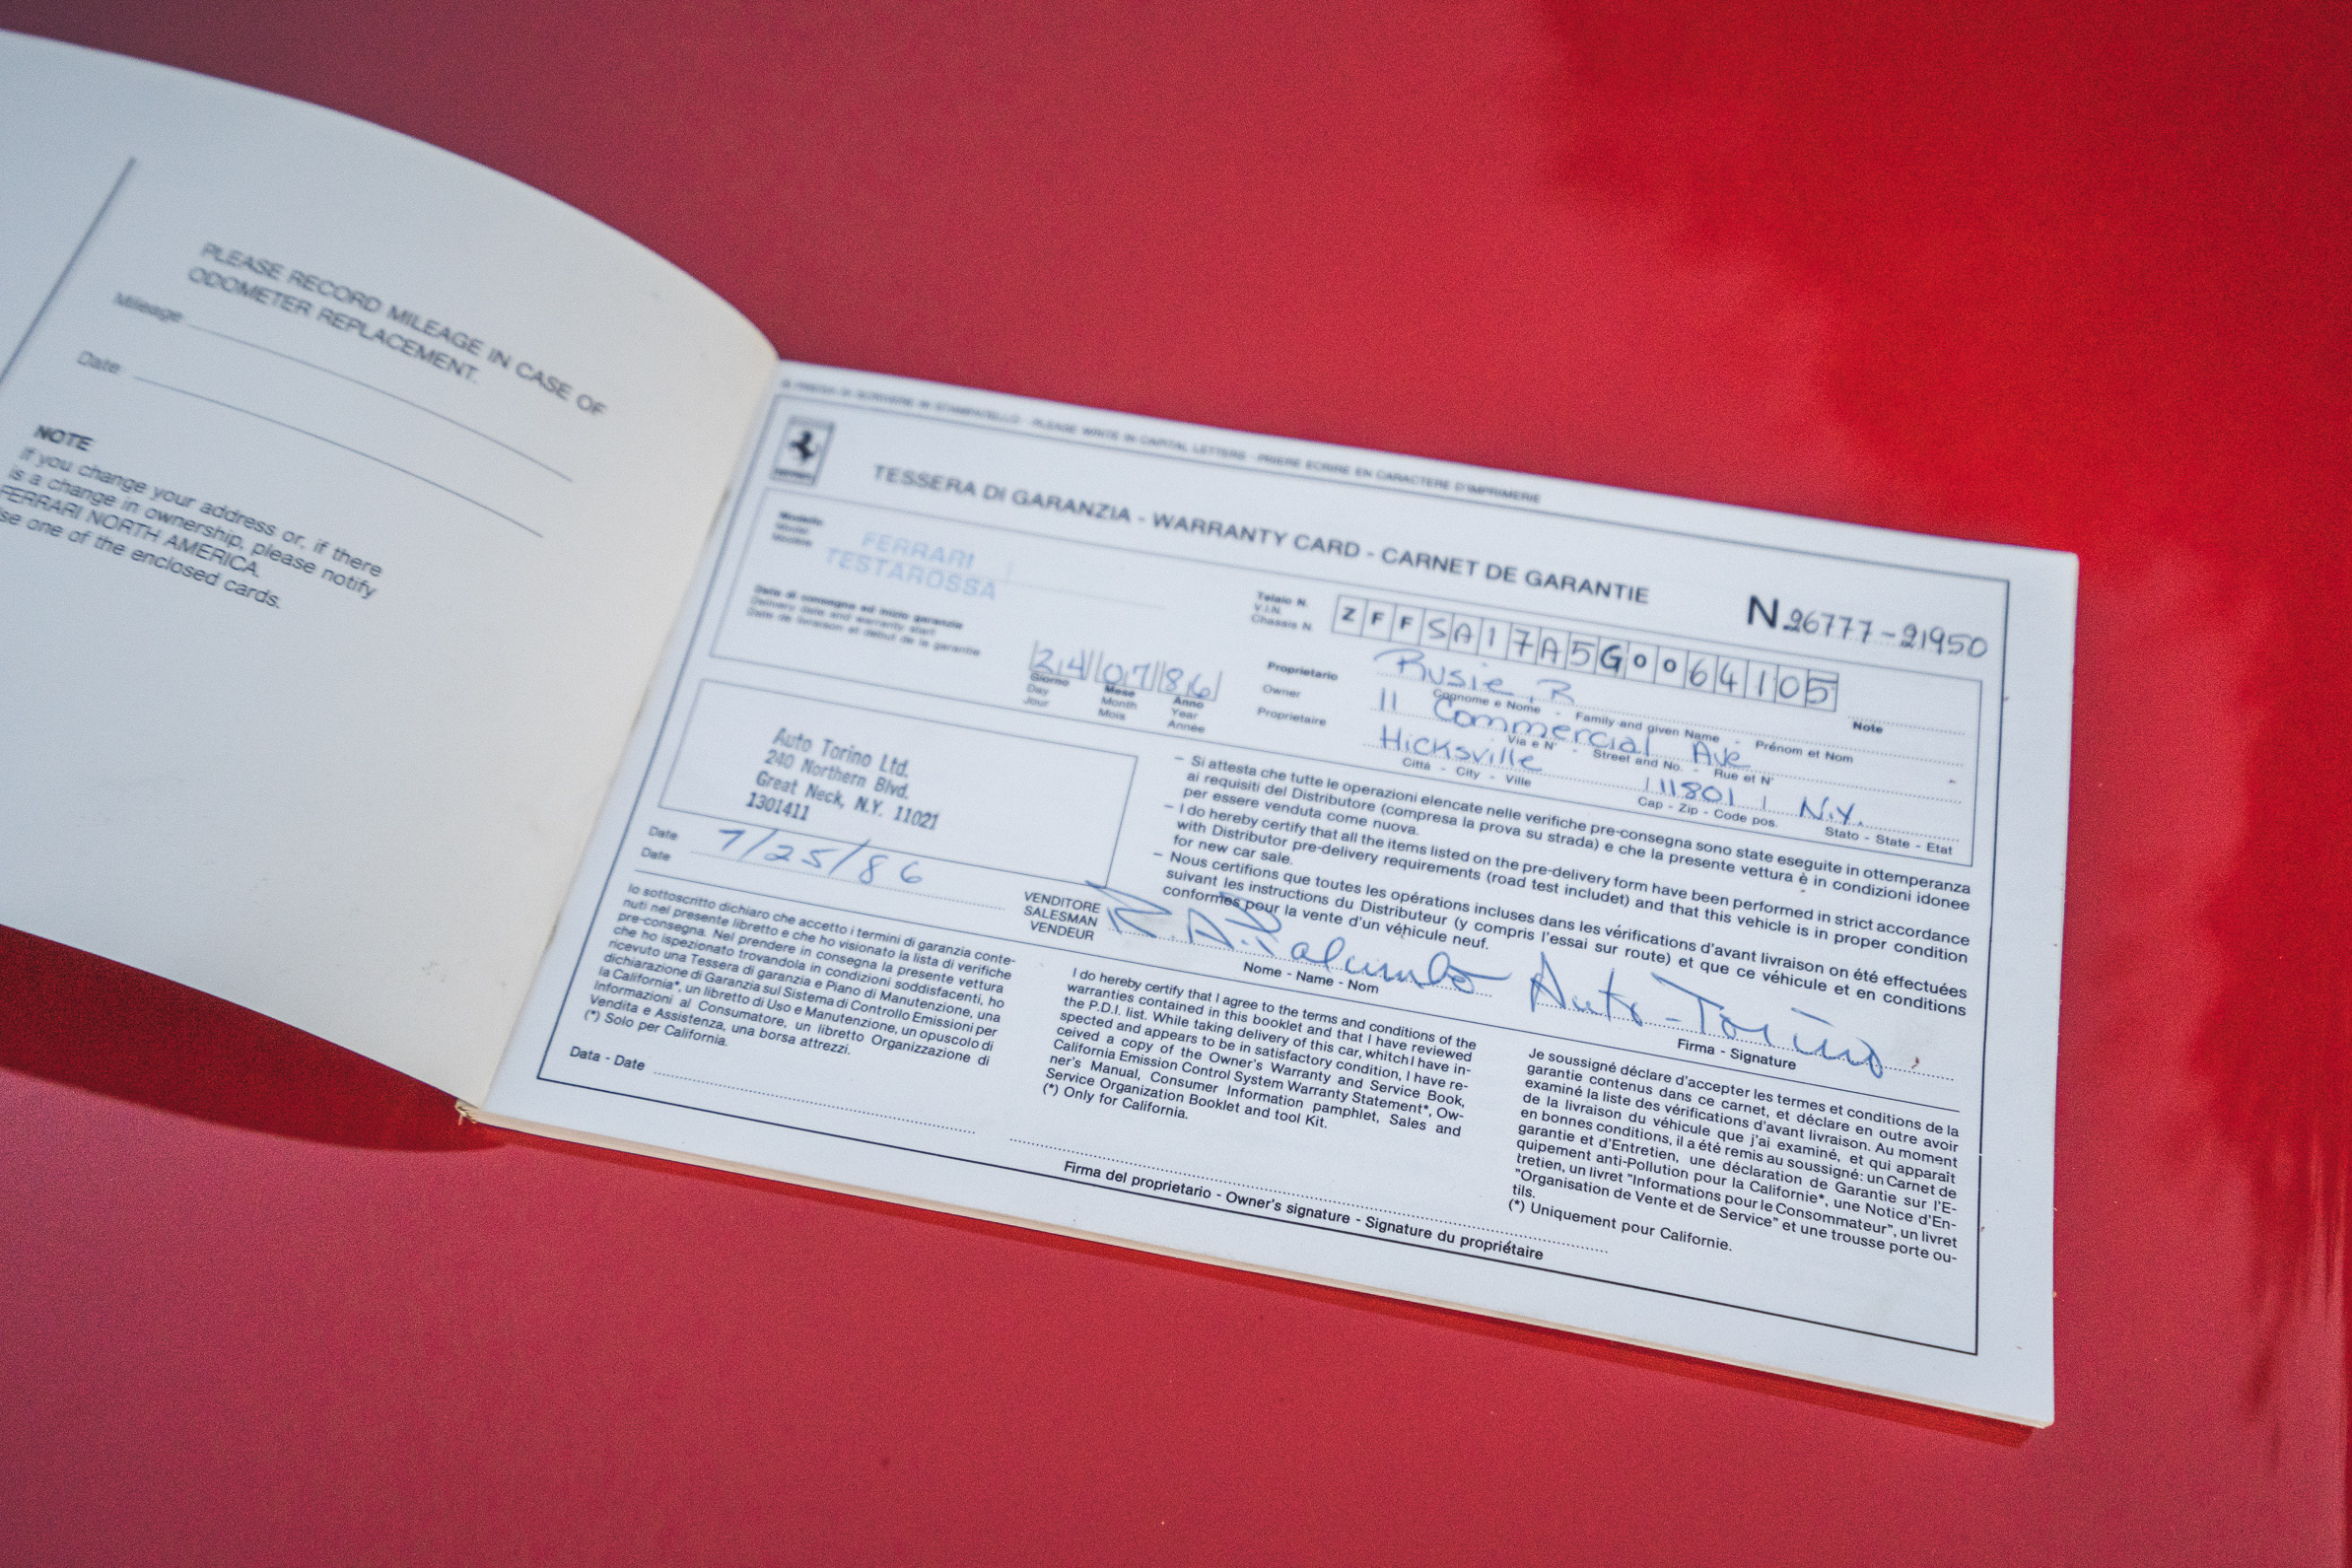 PLEASE RECORD MILEAGE IN CASE OF
ODOMETER REPLACEMENT.
Mileage
Date
NOTE
If you change your address or, if there
is a change in ownership, please notify
FERRARI NORTH AMERICA.
se one of the enclosed cards.
SI PREGA DI SCRIVERE IN STAMPATELLO - PLEASE WRITE IN CAPITAL LETTERS - PRIERE ECRIRE EN CARACTERE D'IMPRIMERIE
TESSERA DI GARANZIA - WARRANTY CARD - CARNET DE GARANTIE
N 26777-21950
Modello
Model
Modèle
FERRARI
TESTAROSSA
Telaio N.
V.I.N.
Chassis N.
ZFFSA17A5G0064105
Data di consegna ed inizio garanzia
Delivery date and warranty start
Date de livraison et début de la garantie
24 07 86
Giorno Mese Anno
Day Month Year
Jour Mois Année
Proprietario
Owner
Proprietaire
Rusie, R
Cognome e Nome - Family and given Name - Prénom et Nom
Note
11 Commercial Ave
Via e N° - Street and No. - Rue et N°
Hicksville 11801 N.Y.
Città - City - Ville
Cap - Zip - Code pos.
Stato - State - Etat
Auto Torino Ltd.
240 Northern Blvd.
Great Neck, N.Y. 11021
1301411
Date
Date
7/25/86
— Si attesta che tutte le operazioni elencate nelle verifiche pre-consegna sono state eseguite in ottemperanza
ai requisiti del Distributore (compresa la prova su strada) e che la presente vettura è in condizioni idonee
per essere venduta come nuova.
— I do hereby certify that all the items listed on the pre-delivery form have been performed in strict accordance
with Distributor pre-delivery requirements (road test includet) and that this vehicle is in proper condition
for new car sale.
— Nous certifions que toutes les opérations incluses dans les vérifications d'avant livraison on été effectuées
suivant les instructions du Distributeur (y compris l'essai sur route) et que ce véhicule et en conditions
conformes pour la vente d'un véhicule neuf.
VENDITORE
SALESMAN
VENDEUR
R. A. Palumbo Auto-Torino
Nome - Name - Nom
Firma - Signature
Io sottoscritto dichiaro che accetto i termini di garanzia conte-
nuti nel presente libretto e che ho visionato la lista di verifiche
pre-consegna. Nel prendere in consegna la presente vettura
che ho ispezionato trovandola in condizioni soddisfacenti, ho
ricevuto una Tessera di garanzia e Piano di Manutenzione, una
dichiarazione di Garanzia sul Sistema di Controllo Emissioni per
la California*, un libretto di Uso e Manutenzione, un opuscolo di
Informazioni al Consumatore, un libretto Organizzazione di
Vendita e Assistenza, una borsa attrezzi.
(*) Solo per California.
Data - Date
I do hereby certify that I agree to the terms and conditions of the
warranties contained in this booklet and that I have reviewed
the P.D.I. list. While taking delivery of this car, whitch I have in-
spected and appears to be in satisfactory condition, I have re-
ceived a copy of the Owner's Warranty and Service Book,
California Emission Control System Warranty Statement*, Ow-
ner's Manual, Consumer Information pamphlet, Sales and
Service Organization Booklet and tool Kit.
(*) Only for California.
Je soussigné déclare d'accepter les termes et conditions de la
garantie contenus dans ce carnet, et déclare en outre avoir
examiné la liste des vérifications d'avant livraison. Au moment
de la livraison du véhicule que j'ai examiné, et qui apparait
en bonnes conditions, il a été remis au soussigné: un Carnet de
garantie et d'Entretien, une déclaration de Garantie sur l'E-
quipement anti-Pollution pour la Californie*, une Notice d'En-
tretien, un livret "Informations pour le Consommateur", un livret
"Organisation de Vente et de Service" et une trousse porte ou-
tils.
(*) Uniquement pour Californie.
Firma del proprietario - Owner's signature - Signature du propriétaire